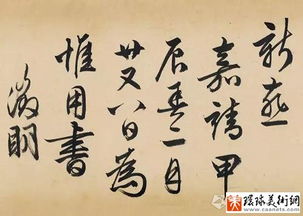 新燕
嘉靖甲
辰春二月
廿又八日為
惟用書
徵明
環球美術網